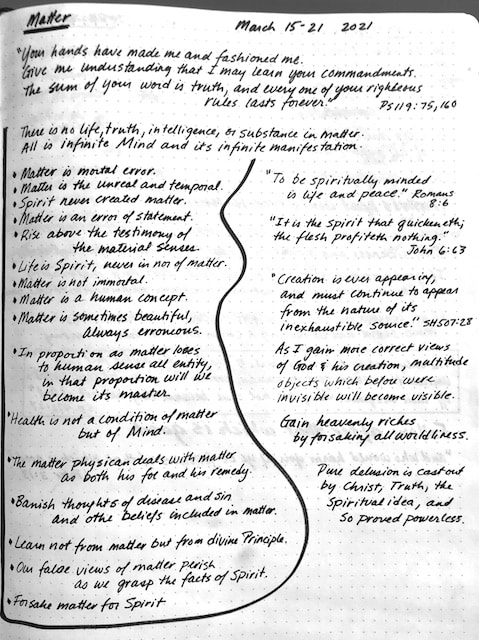 Matter
March 15-21 2021
"Your hands have made me and fashioned me.
Give me understanding that I may learn your commandments.
The sum of your word is truth, and every one of your righteous
rules lasts forever." Ps 119: 75, 160
There is no life, truth, intelligence, or substance in matter.
All is infinite Mind and its infinite manifestation.
• Matter is mortal error.
• Matter is the unreal and temporal.
• Spirit never created matter.
• Matter is an error of statement.
• Rise above the testimony of
the material senses.
• Life is Spirit, never in nor of matter.
• Matter is not immortal.
• Matter is a human concept.
• Matter is sometimes beautiful,
always erroneous.
• In proportion as matter loses
to human sense all entity,
in that proportion will we
become its master.
• Health is not a condition of matter
but of Mind.
• The matter physican deals with matter
as both his foe and his remedy.
• Banish thoughts of disease and sin
and othe beliefs included in matter.
• Learn not from matter but from divine Principle.
• Our false views of matter perish
as we grasp the facts of Spirit.
• Forsake matter for Spirit
"To be spiritually minded
is life and peace." Romans
8:6
"It is the Spirit that quickeneth;
the flesh profiteth nothing."
John 6:63
"Creation is ever appearing,
and must continue to appear
from the nature of its
inexhaustible source." SH507:28
As I gain more correct views
of God & his creation, multitude
objects which before were
invisible will become visible.
Gain heavenly riches
by forsaking all worldliness.
Pure delusion is cast out
by Christ, Truth, the
Spiritual idea, and
so proved powerless.